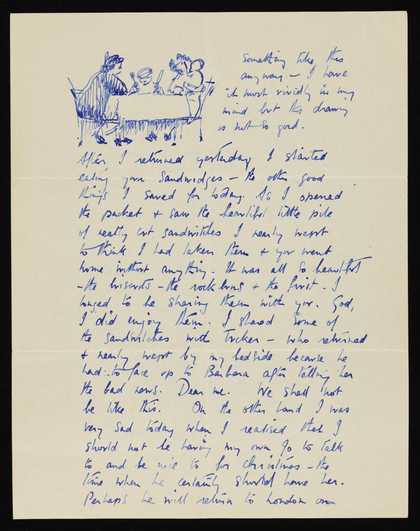 Something like this
anyway - I have
it most vividly in my
mind but this drawing
is not so good.
After I returned yesterday I started
eating your Sandwidges - the other good
things I saved for today. As I opened
the packet + saw the beautiful little pile
of neatly cut sandwitches I nearly wept
to think I had taken them + you went
home without anything. It was all so beautiful
- the biscuits - the rock buns + the fruit. I
longed to be sharing them with you. God,
I did enjoy them. I shared some of
the sandwitches with Tucker - who returned
+ nearly wept by my bedside because he
had to face up to Barbara after telling her
the bad news. Dear me. We shall not
be like this. On the other hand I was
very sad today when I realised that I
should not be having my own Jo to talk
to and be nice to for Christmas - the
time when he certainly should have her.
Perhaps he will return to London on